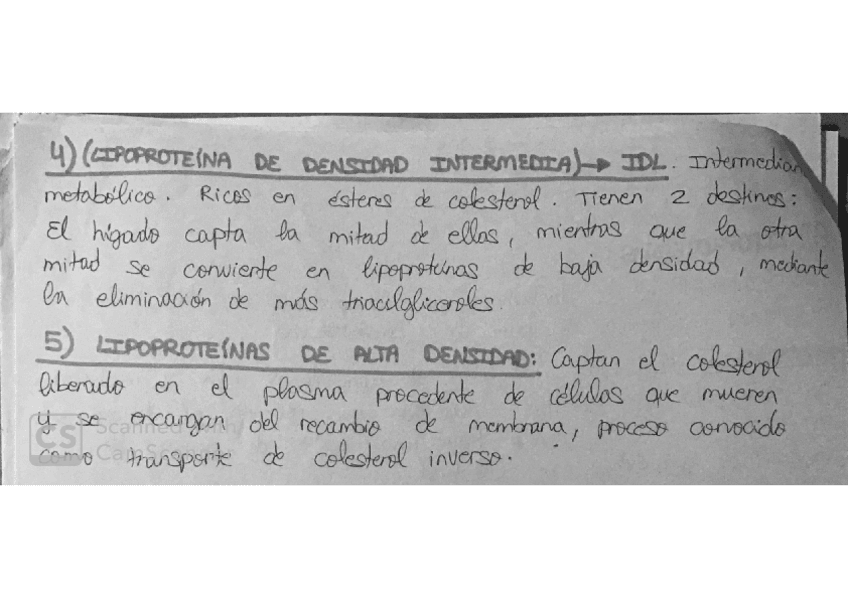 4) (LIPOPROTEÍNA DE DENSIDAD INTERMEDIA) → IDL. Intermediari
metabólico. Ricos en ésteres de colesterol. Tienen 2 destinos:
El hígado capta la mitad de ellas, mientras que la otra
mitad se convierte en lipoproteínas de baja densidad, mediante
la eliminación de más triacilgliceroles.
5) LIPOPROTEÍNAS DE ALTA DENSIDAD: Captan el colesterol
liberado en el plasma procedente de células que mueren
y se encargan del recambio de membrana, proceso conocido
como transporte de colesterol inverso.
CS Scanned with
CamSc